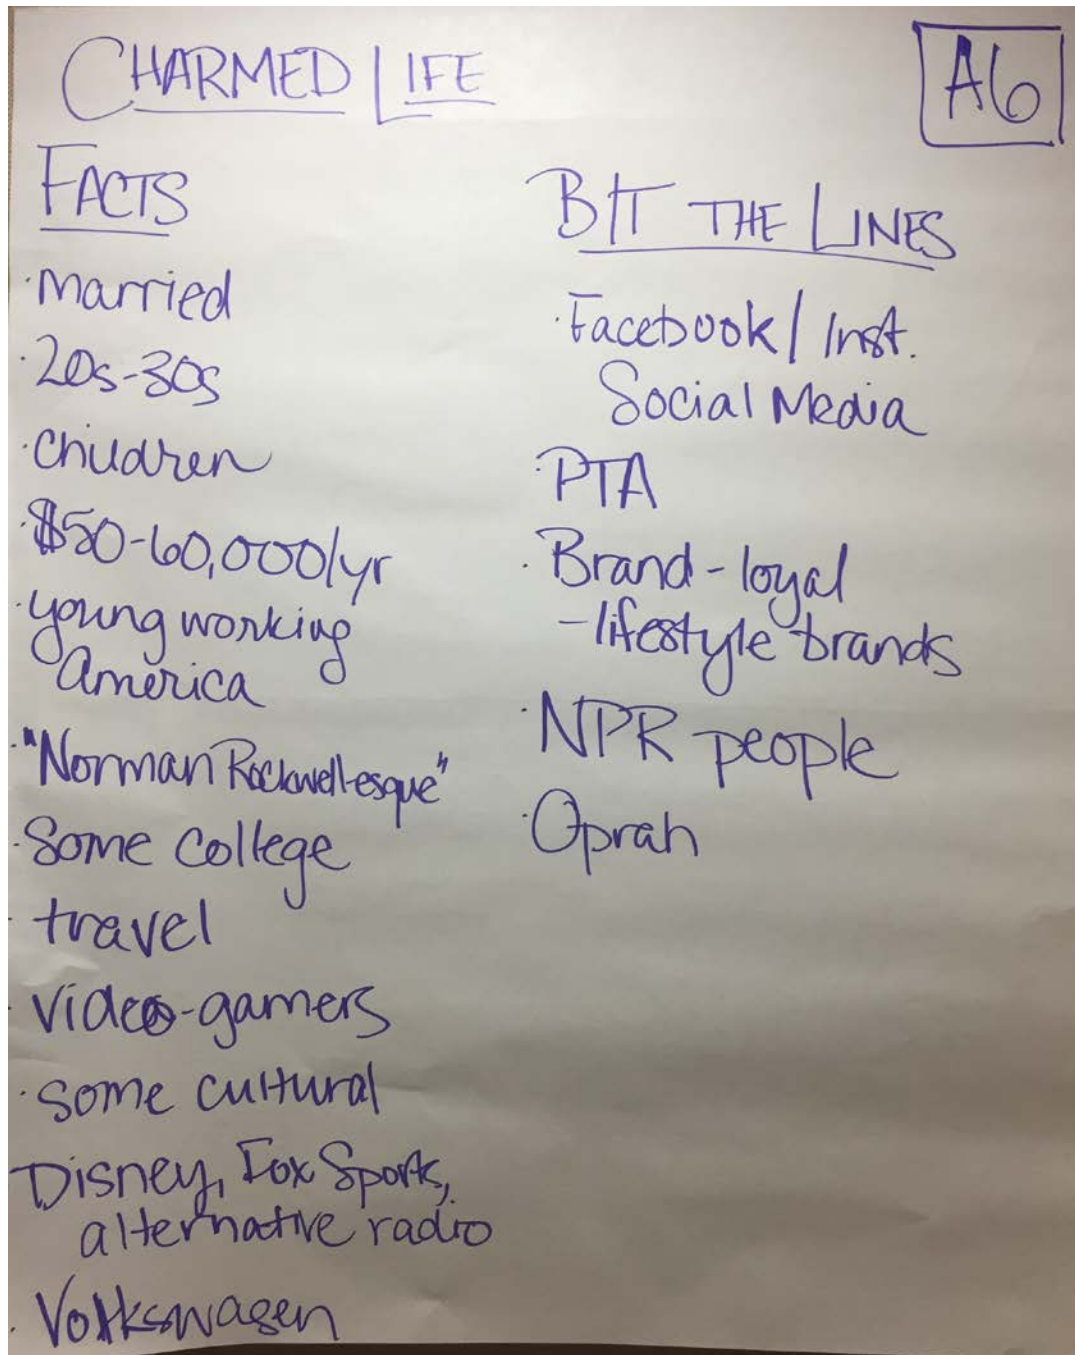 CHARMED LIFE
A6
FACTS
·married
·20s-30s
·children
·$50-60,000/yr
·young working
America
·"Norman Rockwell-esque"
·Some college
·travel
·video-gamers
·some cultural
Disney, Fox Sports,
alternative radio
·Volkswagen
B/T THE LINES
·Facebook/Inst.
Social Media
·PTA
·Brand-loyal
-lifestyle brands
·NPR people
·Oprah